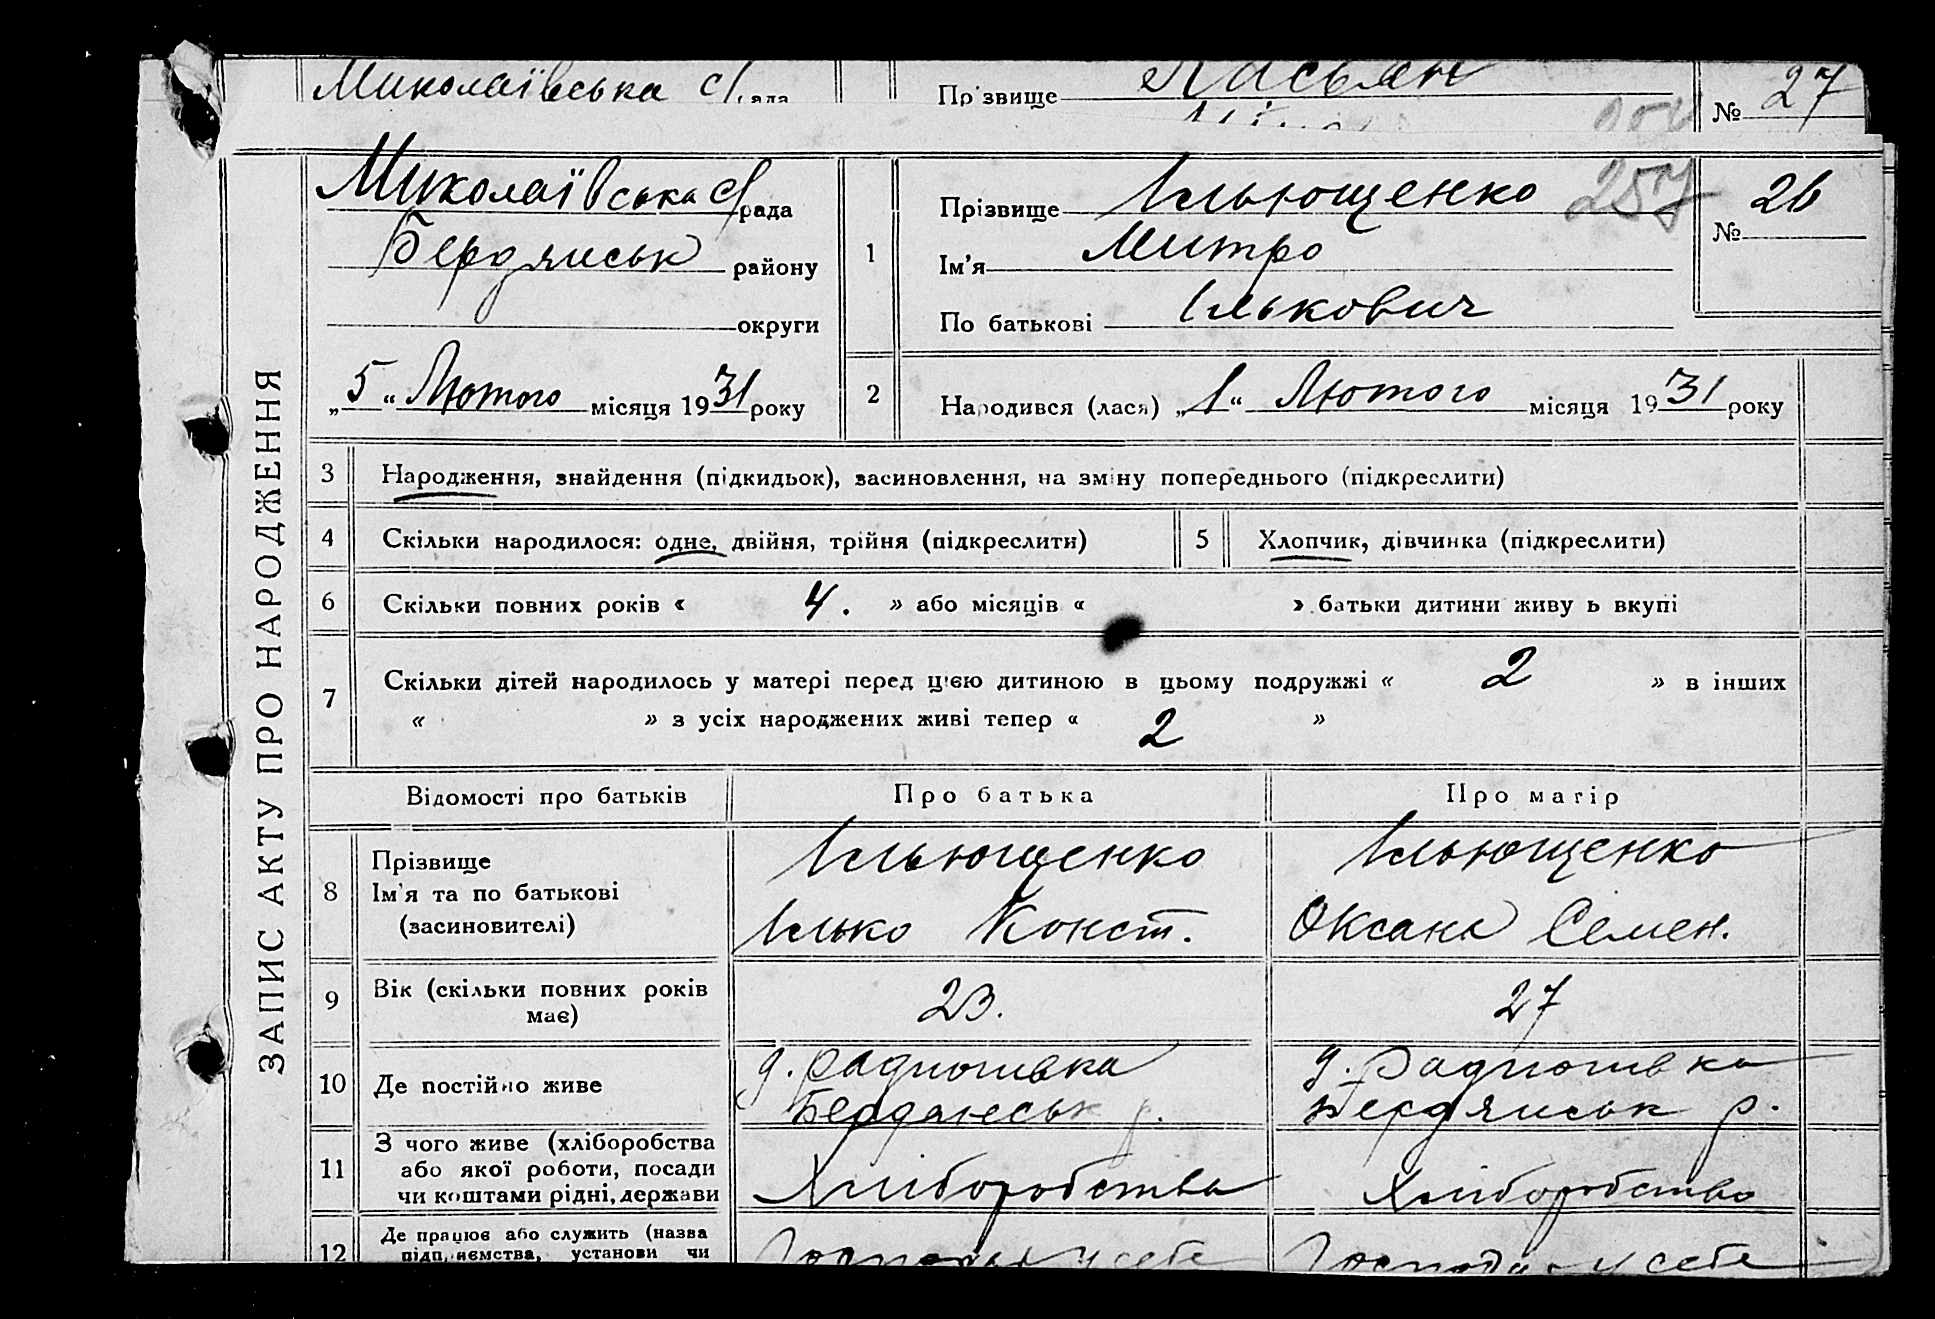 Миколаївська с/рада
Прізвище Касьян
№ 27
ЗАПИС АКТУ ПРО НАРОДЖЕННЯ
Миколаївська с/рада
Бердянськ району
округи
„5“ Лютого місяця 1931 року
1
Прізвище Ільющенко 257
Ім’я Митро
По батькові Ількович
№ 26
2 Народився (лася) „1“ Лютого місяця 1931 року
3 Народження, знайдення (підкидьок), засиновлення, на зміну попереднього (підкреслити)
4 Скільки народилося: одне, двійня, трійня (підкреслити) 5 Хлопчик, дівчинка (підкреслити)
6 Скільки повних років « 4. » або місяців « » батьки дитини живуть вкупі
7 Скільки дітей народилось у матері перед цією дитиною в цьому подружжі « 2 » в інших
« » з усіх народжених живі тепер « 2 »
Відомості про батьків Про батька Про матір
8 Прізвище Ільющенко Ільющенко
Ім’я та по батькові
(засиновителі) Ілько Конст. Оксана Семен.
9 Вік (скільки повних років має) 23. 27
10 Де постійно живе
Бердянськ р. Бердянськ р.
11 З чого живе (хліборобства
або якої роботи, посади
чи коштами рідні, держави Хліборобства Хліборобства
12 Де працює або служить (назва
підприємства, установи чи
у себе у себе